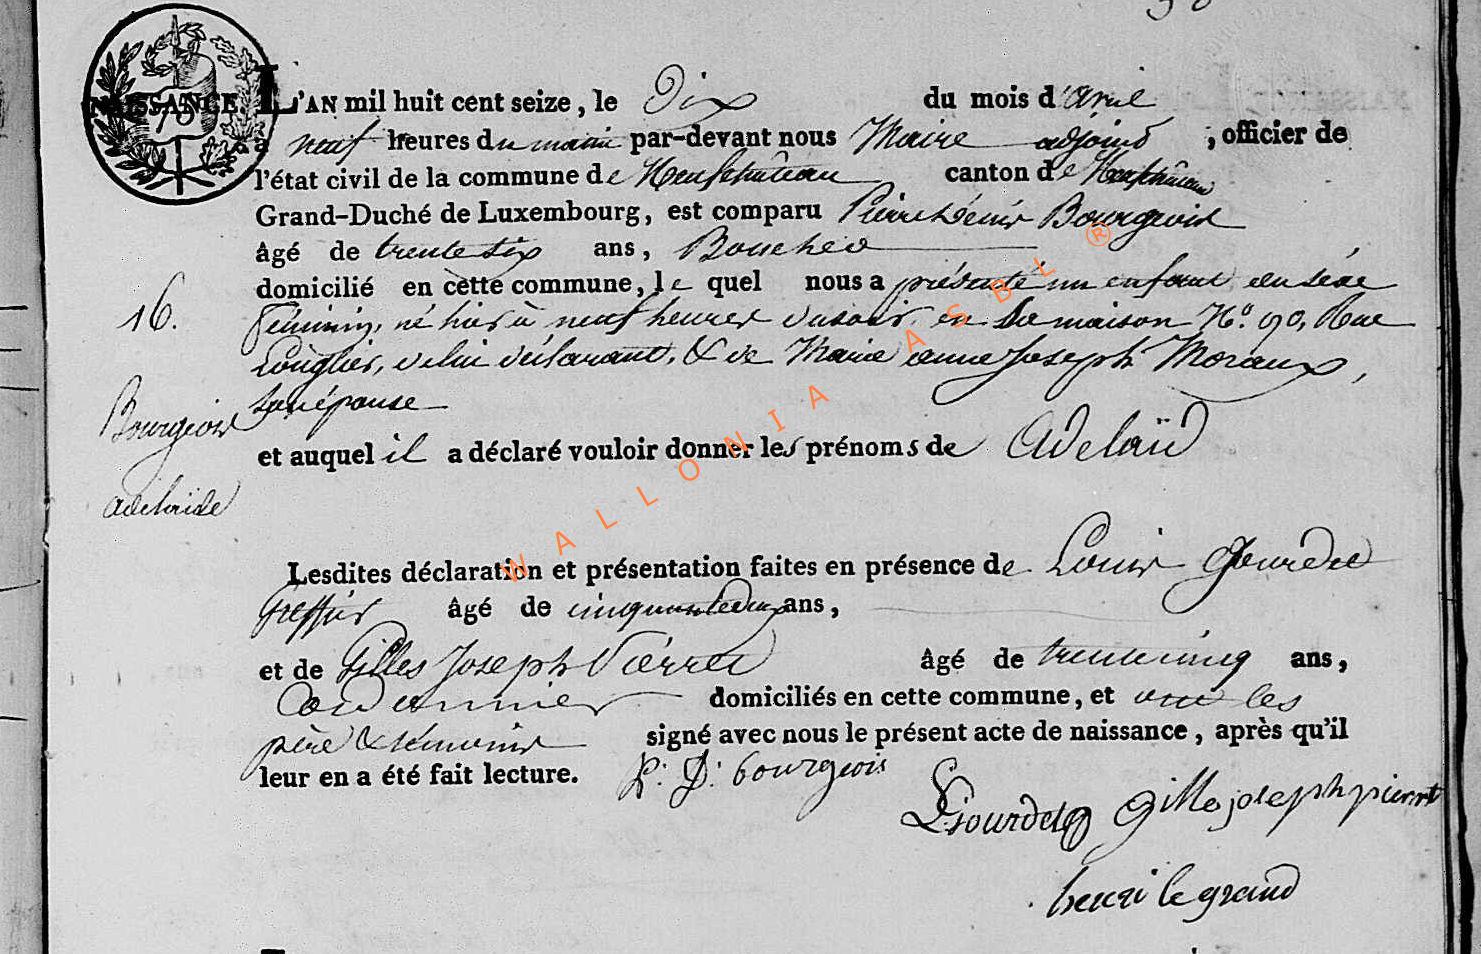 NAISSANCE
75
L'AN mil huit cent seize, le Dix du mois d'avril
à neuf heures du matin par-devant nous Maire adjoint, officier de
l'état civil de la commune de Neufchâteau canton de Neufchâteau
Grand-Duché de Luxembourg, est comparu Pierre Denis Bourgeois
âgé de trente six ans, Boucher
domicilié en cette commune, le quel nous a présenté un enfant du séxe
16.
féminin, né hier à neuf heures du soir, en sa maison N.º 90, Rue
Longlier, de lui déclarant, & de Marie anne Joseph Moraux,
son épouse
Bourgeois
et auquel il a déclaré vouloir donner les prénoms de Adelaïd
adelaïde
Lesdites déclaration et présentation faites en présence de Louis Gourdet
Greffier âgé de cinquante deux ans,
et de Gilles Joseph Piérret âgé de trente cinq ans,
Cordonnier domiciliés en cette commune, et ont les
père & témoins signé avec nous le présent acte de naissance, après qu'il
leur en a été fait lecture. P: D: bourgeois
L: gourdet gille joseph pierret
henri le grand
WALLONIA ASBL ®